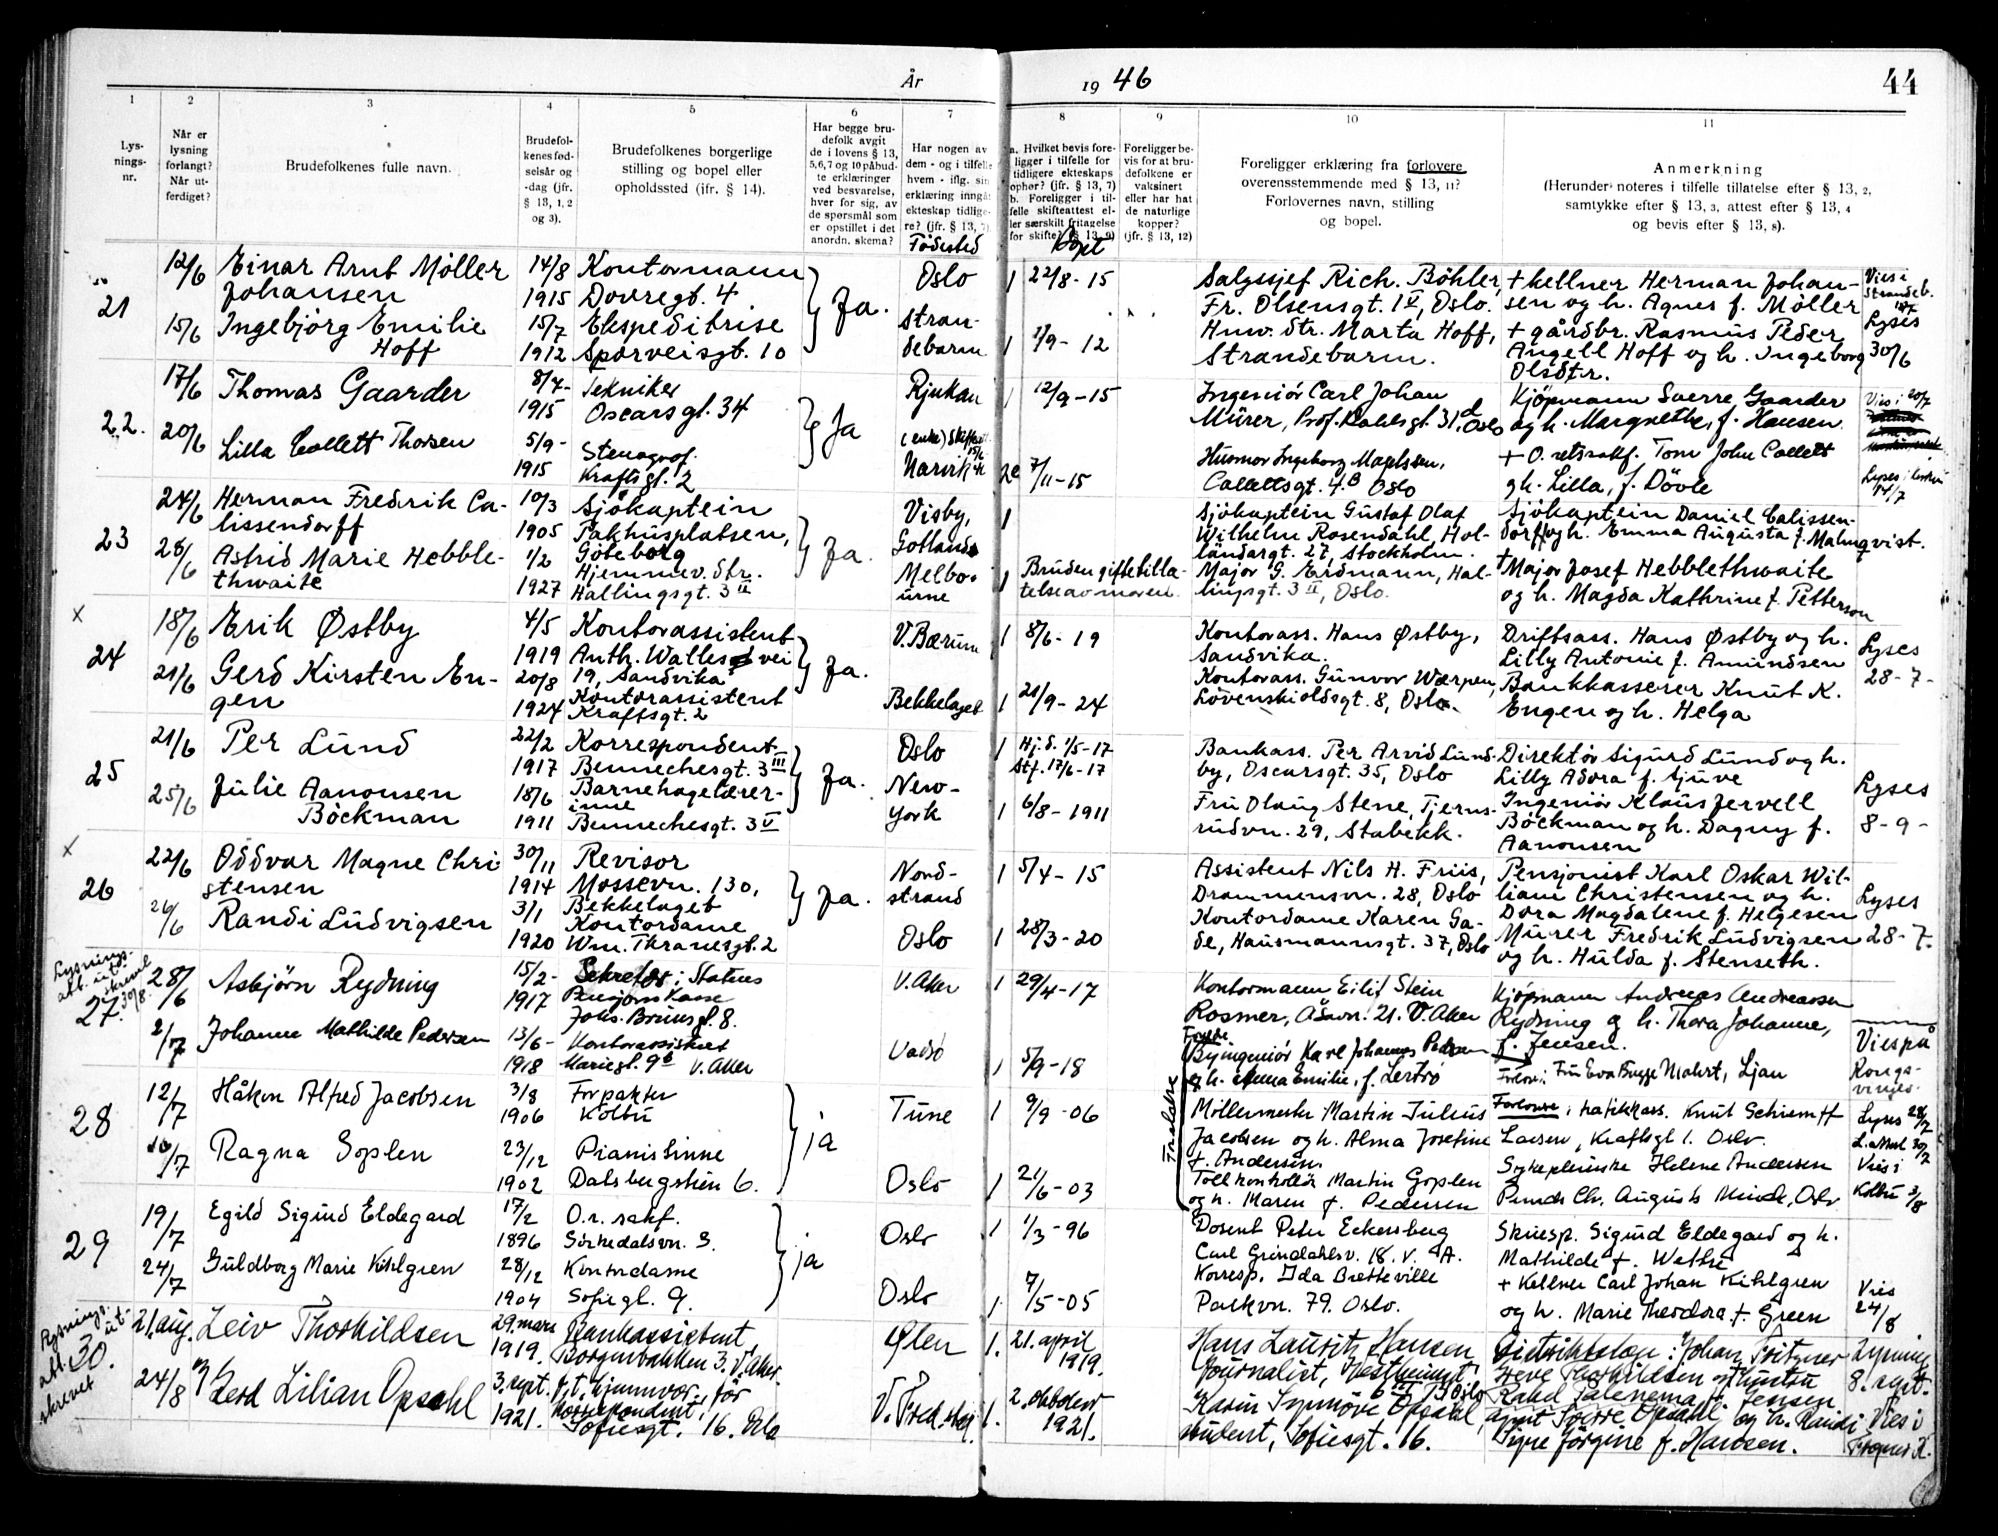 År 1946
44
1 2 3 4 5 6 7 8 9 10 11
Lysningsnr.
Når er lysning forlangt? Når utferdiget?
Brudefolkenes fulle navn.
Brudefolkenes fødselsår og -dag (jfr. § 13, 1, 2 og 3).
Brudefolkenes borgerlige stilling og bopel eller opholdssted (jfr. § 14).
Har begge brudefolk avgit de i lovens § 13, 5, 6, 7 og 10 påbudte erklæringer ved besvarelse, hver for sig, av de spørsmål som er opstillet i det anordn. skema?
Har nogen av dem - og i tilfelle hvem - iflg. sin erklæring inngått ekteskap tidligere? (jfr. § 13, 7)
Födested
a. Hvilket bevis foreligger i tilfelle for tidligere ekteskaps ophør? (jfr. § 13, 7)
b. Foreligger i tilfelle skifteattest eller særskilt fritagelse for skifte? (§ 13, 9)
Döpt
Foreligger bevis for at brudefolkene er vaksinert eller har hat de naturlige kopper? (jfr. § 13, 12)
Foreligger erklæring fra forlovere overensstemmende med § 13, 11? Forlovernes navn, stilling og bopel.
Anmerkning
(Herunder noteres i tilfelle tillatelse efter § 13, 2, samtykke efter § 13, 3, attest efter § 13, 4 og bevis efter § 13, 8).
21
12/6 Einar Arnt Möller Johansen 14/8 1915 Kontormann Dovregt. 4 Ja. Oslo 1 22/8 - 15
Salgssjef Rich. Böhler, Fr. Olsensgt. 1 V, Oslo.
+ kellner Herman Johansen og h. Agnes f. Möller
15/6 Ingebjörg Emilie Hoff 15/7 1912 Ekspeditrise Sporveisgt. 10 Strandebarm 1 /9 - 12
Husv. dtr. Marta Hoff, Strandebarm.
+ gårdbr. Rasmus Peder Angell Hoff og h. Ingeborg Olsdtr.
Vies i Strandeb.
Lyses 30/6
22.
17/6 Thomas Gaarder 8/4 - 1915 Tekniker Oscarsgt. 34 Ja Rjukan 1 12/9 - 15
Ingeniör Carl Johan Mürer, Prof. Dahlsgt. 31 d, Oslo
Kjöpmann Sverre Gaarder og h. Margrethe, f. Hansen
20/6 Lilla Collett Thorsen 5/9 - 1915 Stenograf. Kraftsgt. 2 (enke) Narvik 2e 7/11 - 15
Husmor Ingeborg Magelssen, Collettsgt. 4 B Oslo
+ O. retssakf. Tom John Collett gh. Lilla, f. Dövle
Vies i 20/7
23
24/6 Herman Fredrik Calissendorff 10/3 1905 Sjökaptein Pakhusplatsen, Göteborg Ja. Visby, Gotland 1
Sjökaptein Gustaf Olaf Wilhelm Rosendahl, Holländargt. 27, Stockholm.
Sjökaptein Daniel Calissendorff og h. Emma Augusta f. Malmqvist.
28/6 Astrid Marie Hebblethwaite 1/2 1927 Hjemmev. dtr. Hallingsgt. 3 II Melbourne 1 Bruden giftetillatelse av moren.
Major G. Erdmann, Hallingsgt. 3 II, Oslo.
+ Major Josef Hebblethwaite og h. Magda Kathrine f. Petterson
x
24
18/6 Erik Østby 4/5 1919 Kontorassistent Anth. Walles vei 19, Sandvika Ja. V. Bærum 1 8/6 - 19
Kontorass. Hans Østby, Sandvika.
Driftsass. Hans Østby og h. Lilly Antonie f. Amundsen
21/6 Gerd Kirsten Engen 20/8 1924 Kontorassistent Kraftsgt. 2 Bekkelaget 1 21/9 - 24
Kontorass. Gunvor Wærpen, Lövenskioldsgt. 8, Oslo.
Bankkasserer Knut K. Engen og h. Helga
Lyses 28-7-
25
21/6 Per Lund 22/2 1917 Korrespondent Bennechesgt. 3 III Ja. Oslo 1 Hj.d. 1/5-17 Stf. 17/6-17
Bankass. Per Arvid Lundby, Oscarsgt. 35, Oslo
Direktör Sigurd Lund og h. Lilly Adora f. Gjuve
25/6 Julie Aanonsen Böckman 18/6 1911 Barnehagelærerinne Bennechesgt. 3 V New-York 1 6/8 - 1911
Fru Olaug Stene, Tjernsrudvn. 29, Stabekk.
Ingeniör Klaus Jervell Böckman og h. Dagny f. Aanonsen
Lyses 8-9-
x
26
22/6 Oddvar Magne Christensen 30/11 1914 Revisor Mossevn. 130, Bekkelaget Ja. Nordstrand 1 5/4 - 15
Assistent Nils H. Friis, Drammensvn. 28, Oslo
Pensjonist Karl Oskar William Christensen og h. Dora Magdalene f. Helgesen
26/6 Randi Ludvigsen 3/1 1920 Kontordame Wm. Thranesgt. 2 Oslo 1 28/3 - 20
Kontordame Karen Gade, Hausmannsgt. 37, Oslo
Murer Fredrik Ludvigsen og h. Hulda f. Stenseth.
Lyses 28-7-
Lysningsatt. utskrevet 30/8.
27.
28/6 Asbjörn Rydning 15/2 - 1917 Sekretær i Statens Pensjons Kasse Johs. Brunsgt. 8. V. Aker 1 29/4 - 17
Kontormann Eilif Stein Rosmer, Åsavn. 21. V. Aker
Kjöpmann Andreas Andreassen Rydning og h. Thora Johanne, f. Jensen.
2/7 Johanne Mathilde Pedersen 13/6 - 1918 Kontorassistent Mariesgt. 9 b V. Aker Vadsö 1 5/9 - 18
Byingeniör Karl Johannes Pedersen og h. Anna Emilie, f. Lertrö
Forlover: Fru Eva Brygge Mohrt, Ljan
Vies på Kongsvinger.
28
12/7 Håkon Alfred Jacobsen 3/8 1906 Forpakter Kolbu ja Tune 1 9/9 - 06
Foreldre
Möllermester Martin Julius Jacobsen og h. Alma Josefine f. Andersen.
Forlovere: trafikkass. Knut Schiemff Larsen, Kraftsgt 1. Oslo.
/7 Ragna Goplen 23/12 1902 Pianistinne Dalsbergstien 6. Oslo 1 21/6 - 03
Tollkontrollör Martin Goplen og h. Maren f. Pedersen
Sykepleierske Helene Andersen
Lyses 28/7
Vies i Kolbu 3/8
29
19/7 Egild Sigurd Eldegard 17/2 1896 O.r. sakf. Sörkedalsvn. 3. ja Oslo 1 1/3 - 96
Dosent Peter Eckersberg Carl Grindahlsv. 18. V. A.
Skuesp. Sigurd Eldegard og h. Mathilde f. Wettre
24/7 Guldborg Marie Kihlgren 28/12 1904 Kontordame Sofiegt. 9. Oslo 1. 7/5 - 05
Korresp. Ida Bretteville Parkvn. 79. Oslo.
+ Kellner Carl Johan Kihlgren og h. Marie Theodora f. Green
Vies 24/8
Lysningsatt. utskrevet
30.
21. aug. Leiv Thorkildsen 29. mars 1919. Bankassistent Borgenbakken 3. V. Aker. Ølen 1. 21. april 1919.
Hans Lauritz Hansen Journalist, Vestheimgt. 6 III Oslo
24/8 Gerd Lilian Opsahl 3. sept. 1921. korrespondent, Sofiesgt. 16. Oslo V. 1. 2. oktober 1921.
Karin Synnöve Opsahl, student, Sofiesgt. 16.
agent Sverre Opsahl og h. Randi Signe Jörgine f. Hansen.
Lysning 8. sept. Vies i Frogner K.